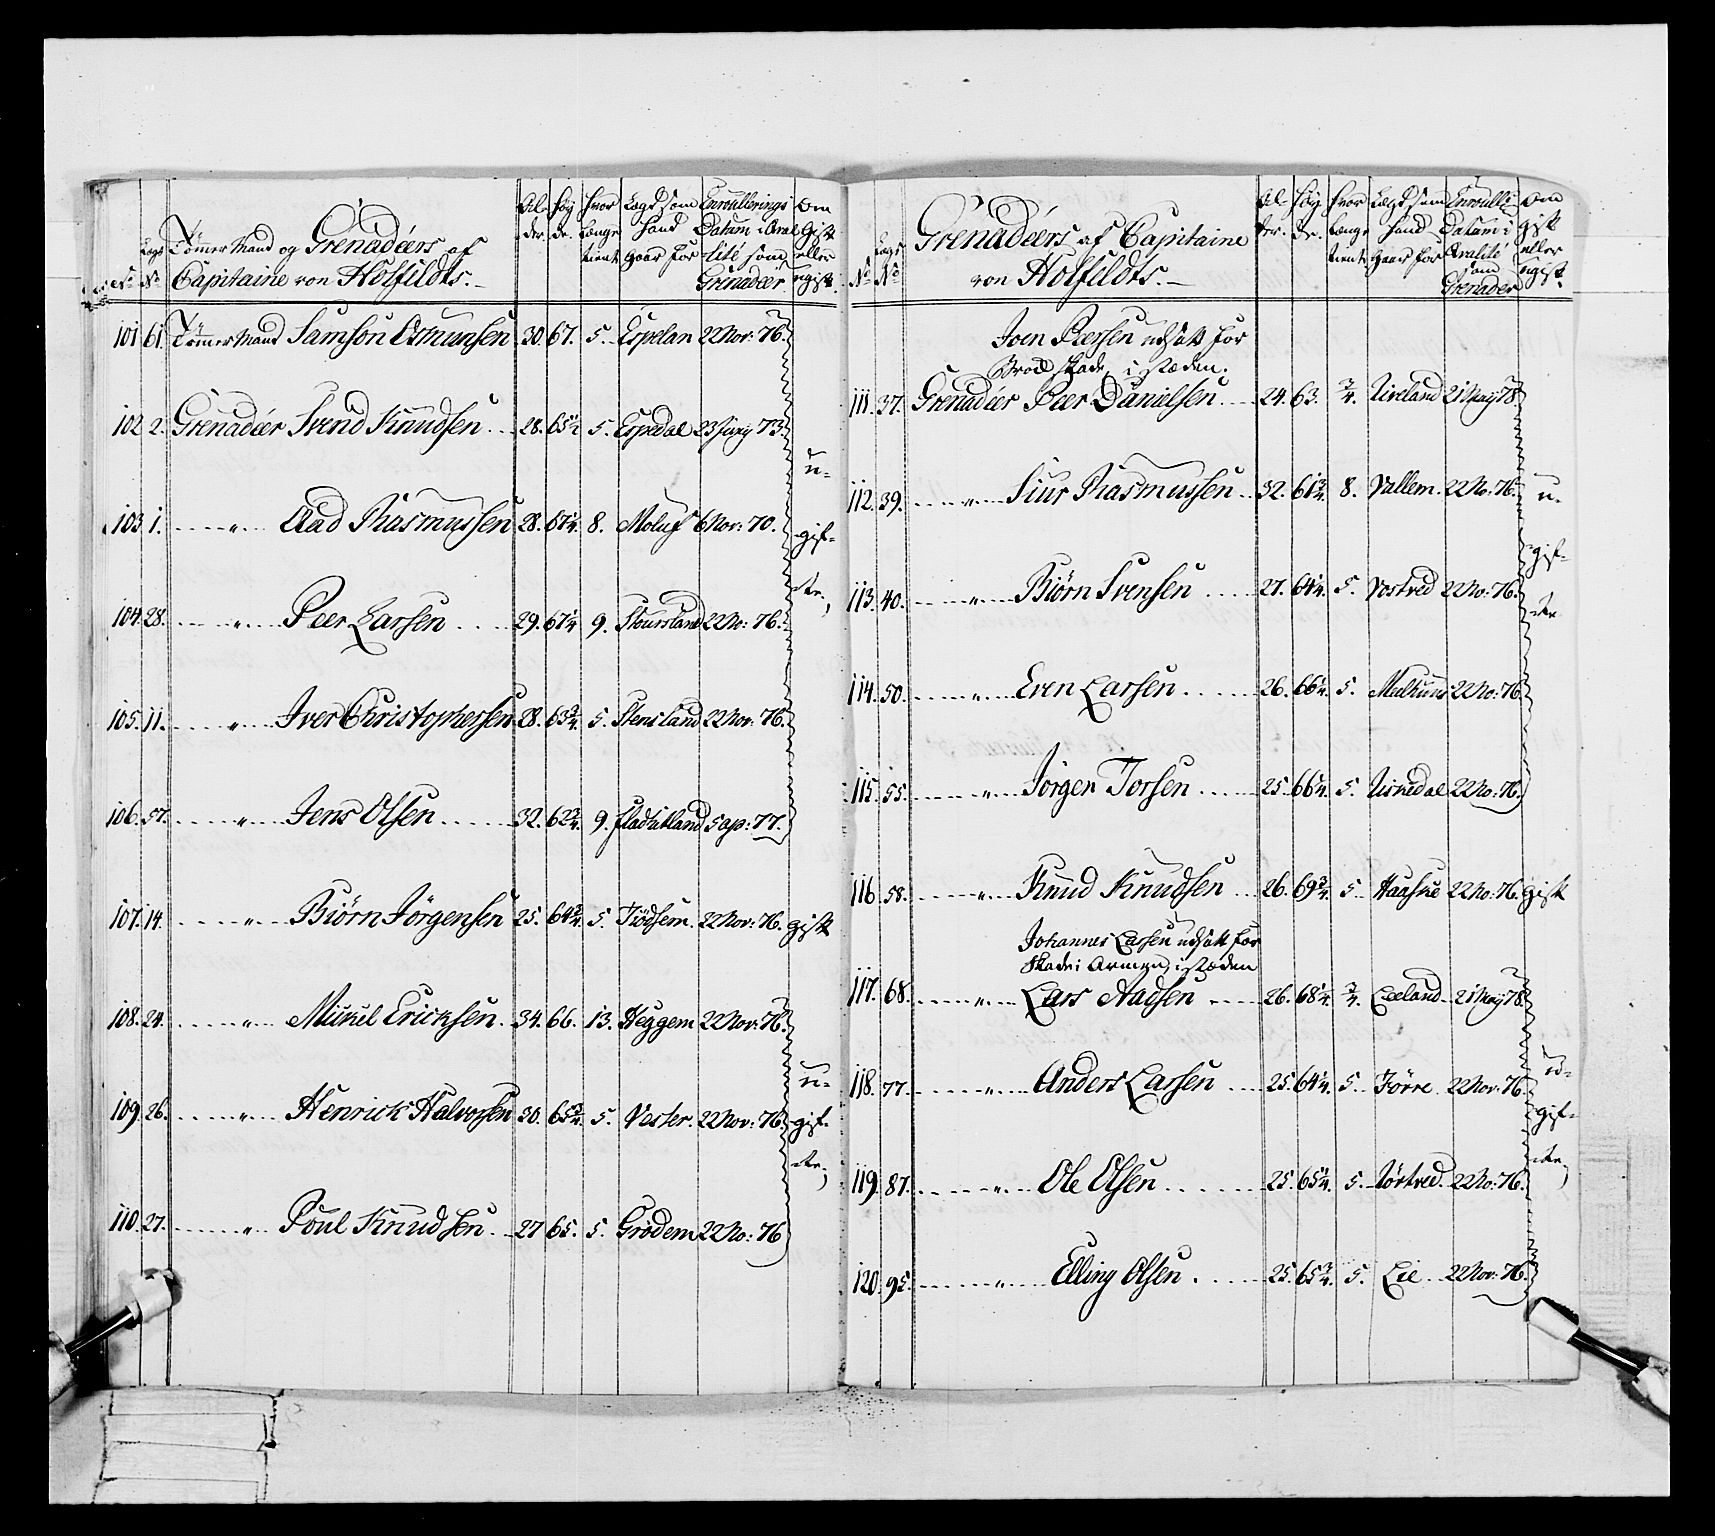 Nº Lægs Nº Tömer Mand og Grenadéers af Capitaine von Holfeldts. Al- der. Høy de. Hvor Længe tient Lægd som Hand gaar for Enroullerings Datum i Qvalité som Grenadeer Om Gift eller ugift.
101 61. Tömmer Mand Samson Asmunsen 30. 67. 5. Espelan 22 Nov: 76.
102 2. Grenadéer Svend Knudsen 28. 65½ 5. Espedal 23 Juny 73.
u-
103 1. " Aad Rasmussen 28. 67¼ 8. Moluf 6 Nov: 70.
gif-
104. 28. " Peer Larsen 29. 67¼ 9. 22 No: 76.
te,
105. 11. " Iver Christophersen 28. 63¾ 5. Stensland 22 Nov: 76.
106. 57. " Jens Olsen 32. 62¾ 9. 5 ap: 77.
107. 14. " Biörn Jörgensen 25. 64¾ 5. Tiödsem. 22 Nov: 76. gift
108. 24. " Mickel Ericksen. 34. 66. 13. Heggem 22 Nov: 76.
u-
109. 26. " Henrick Halvorsen 30. 65¾. 5. Vester. 22 Nov: 76.
gif-
te,
110. 27. " Poul Knudsen 27 65. 5. Grödem 22 No: 76
Nº Lægs Nº Grenadéers af Capitaine von Holfeldts. Al- der. Høy de. Hvor Længe tient Lægd som Hand gaar for Enroulli: Datum i Qvalité som Grenader Om gift eller ugift.
Joen Peersen udsatt for
Brock skade, i stæden.
111. 37. Grenadéer Peer Danielsen 24. 63. ¾. 21 May 78
112. 39. " Siur Rasmussen 32. 61¾. 8. Vallem. 22 No: 76.
u-
gif-
113. 40. " Biörn Svensen 27. 64¼. 5. Vostved 22 No: 76.
te
114. 50. " Even Larsen 26. 66¼. 5. 22 No: 76
115. 55. " Jörgen Torsen 25. 66¼. 5. 22 No: 76.
116. 58. " Knud Knudsen 26. 69¾. 5. Haaskie 22 No: 76. gift
Johannes Larsen udsatt for
skade i Armen, i stæden
117. 68. " Lars Aadsen 26. 68¼. ¾. Leeland 21 May 78.
118. 77. " Anders Larsen 25. 64¼. 5. Jörre 22 Nov: 76
u-
gif-
119. 87. " Ole Olsen 25. 65¼. 5. 22 No: 76.
te,
120. 95. " Elling Olsen. 25. 65¾. 5. Lie 22 Nov: 76.